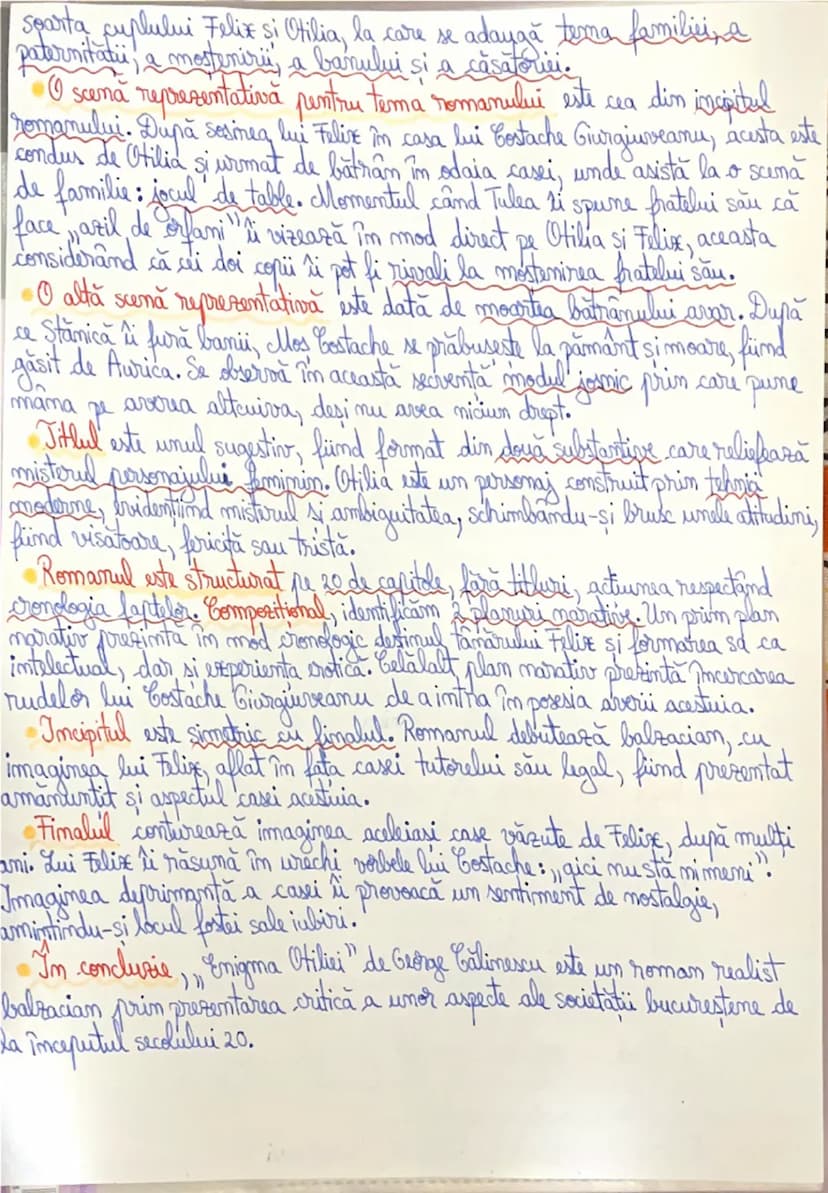 soarta cuplului Felix și Otilia, la care se adaugă tema familiei, a
paternității, a moștenirii, a banului și a căsătoriei.
O scenă reprezentativă pentru tema romanului este cea din incipitul
romanului. După sosirea lui Felix în casa lui Costache Giurgiuveanu, acesta este
condus de Otilia și urmat de bătrân în odaia casei, unde asistă la o scenă
de familie: jocul de table. Momentul când Tulea îi spune fratelui său că
face „azil de orfani" îi vizează în mod direct pe Otilia si Felix, aceasta
considerând că cei doi copii îi pot fi rivali la moștenirea fratelui său.
O altă scenă reprezentativă este dată de moartea bătrânului avar. După
ce Stănică îi fură banii, Moș Costache se prăbușește la pământ și moare, fiind
găsit de Aurica. Se observă în această secvență modul josnic prin care pune
mâna pe averea altcuiva, deși nu avea niciun drept.
Titlul este unul sugestiv, fiind format din două substantive care reliefează
misterul personajului feminin. Otilia este un personaj construit prin tehnici
moderne, evidențiind misterul și ambiguitatea, schimbându-și brusc unele atitudini,
fiind visătoare, fericită sau tristă.
Romanul este structurat pe 20 de capitole, fără titluri, acțiunea respectând
cronologia faptelor. Compozițional, identificăm 2 planuri narative. Un prim plan
narativ prezintă în mod cronologic destinul tânărului Felix și formarea sa ca
intelectual, dar și experiența erotică. Celălalt plan narativ prezintă încercarea
rudelor lui Costache Giurgiuveanu de a intra în posesia averii acestuia.
Incipitul este simetric cu finalul. Romanul debutează balzacian, cu
imaginea lui Felix, aflat în fața casei tutorelui său legal, fiind prezentat
amănunțit și aspectul casei acestuia.
Finalul conturează imaginea aceleiași case văzute de Felix, după mulți
ani. Lui Felix îi răsună în urechi vorbele lui Costache: „aici nu stă nimeni".
Imaginea deprimantă a casei îi provoacă un sentiment de nostalgie,
amintindu-și locul fostei sale iubiri.
În concluzie, „Enigma Otiliei" de George Călinescu este un roman realist
balzacian prin prezentarea critică a unor aspecte ale societății bucureștene de
la începutul secolului 20.